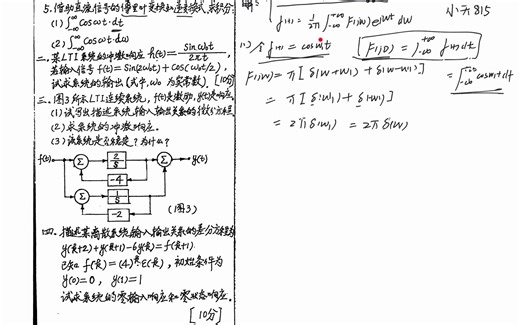 5. 借助直流信号的傅里叶变换和
(1) ∫ cosωt·dt
(2) ∫ cosωt dω
二. 某LTI系统的冲激响应 h(t)= sin2ω₀t / 2πt
若输入信号 f(t)=sin(2ω₀t)+cos(ω₀t/2),
试求系统的输出 (式中, ω₀ 为实常数). [10分]
三. 图3所示LTI连续系统, f(t)是激励, y(t)是响应.
(1) 试写出描述系统输入输出关系的微分方程
(2) 求系统的冲激响应.
(3) 该系统是否稳定? 为什么?
f(t) Σ 2/s Σ y(t)
-4
Σ 1/s
-2 (图3)
四. 描述某离散系统输入输出关系的差分方程为
y(k+2)+y(k+1)-6y(k)=f(k+1)
已知 f(k)=(4)ᵏε(k), 初始条件为
y(0)=0, y(1)=1
试求系统的零输入响应和零状态响应.
[10分]
解:
f(t) = 1/2π ∫ F(w) e^jwt dw
815
(1) 令 f(t) = cosw₁t
F(j0) = ∫ f(t)dt
F(jw) = π[δ(w+w₁) + δ(w-w₁)]
= ∫ cosw₁t dt
= π[δ(w₁) + δ(w₁)]
= 2πδ(w₁) = 2πδ(w)